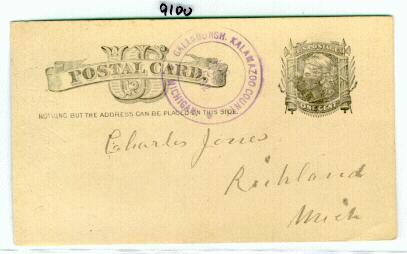 9100
U S
POSTAL CARD.
GALESBURGH, KALAMAZOO COUNTY
MICHIGAN
POSTAGE
ONE CENT
NOTHING BUT THE ADDRESS CAN BE PLACED ON THIS SIDE.
Charles Jones
Richland
Mich